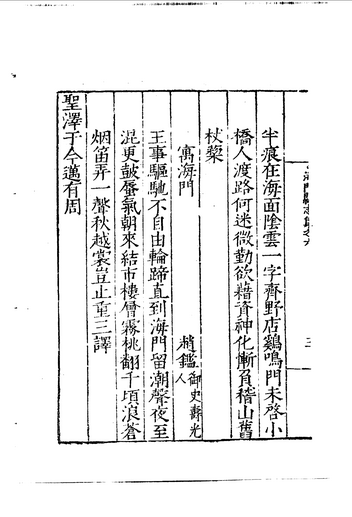 半痕在海面陰雲一字齊野店鷄鳴門未啓小
橋人渡路何迷微勤欲藉資神化慚負稽山舊
杖藜
寓海門 趙鑑 御史壽光人
王事驅馳不自由輪蹄直到海門留潮聲夜至
混更鼓蜃氣朝來結市樓僧霧桃翻千頃浪蒼
烟笛弄一聲秋越裳豈止重三譯
聖澤于今邁有周